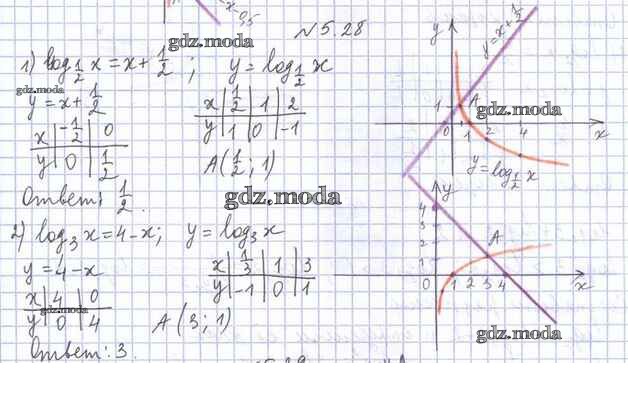 -x-0,5
№5.28
1) log 1/2 x = x + 1/2 ; y = log 1/2 x
y = x + 1/2
x | -1/2 | 0
y | 0 | 1/2
x | 1/2 | 1 | 2
y | 1 | 0 | -1
A(1/2 ; 1)
Ответ: 1/2.
y
y = x + 1/2
1 A
0 1 2 4 x
y = log 1/2 x
2) log₃ x = 4 - x; y = log₃ x
y = 4 - x
x | 4 | 0
y | 0 | 4
x | 1/3 | 1 | 3
y | -1 | 0 | 1
A (3 ; 1)
Ответ: 3.
y
4
3
2
1
A
0 1 2 3 4 x
gdz.moda
gdz.moda
gdz.moda
gdz.moda
gdz.moda
gdz.moda